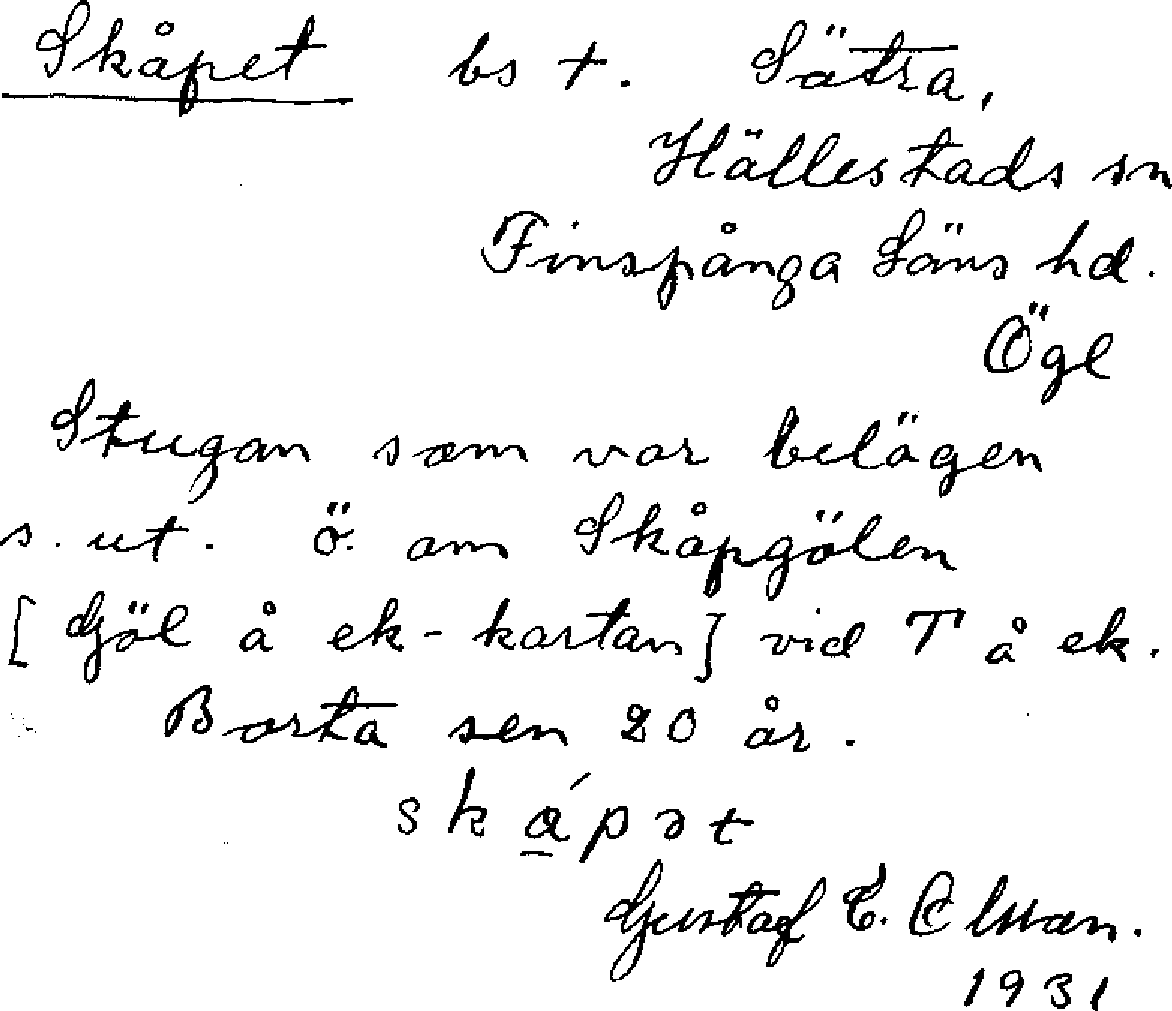 Skåpet bs t. Sätra,
Hällestads sn
Finspånga Läns hd.
Ögl
Stugan som var belägen
s. ut. ö. om Skåpgölen
[Göl å ek-kartan] vid T å ek.
Borta sen 20 år.
ská̱pət
Gustaf E. Olsson.
1931